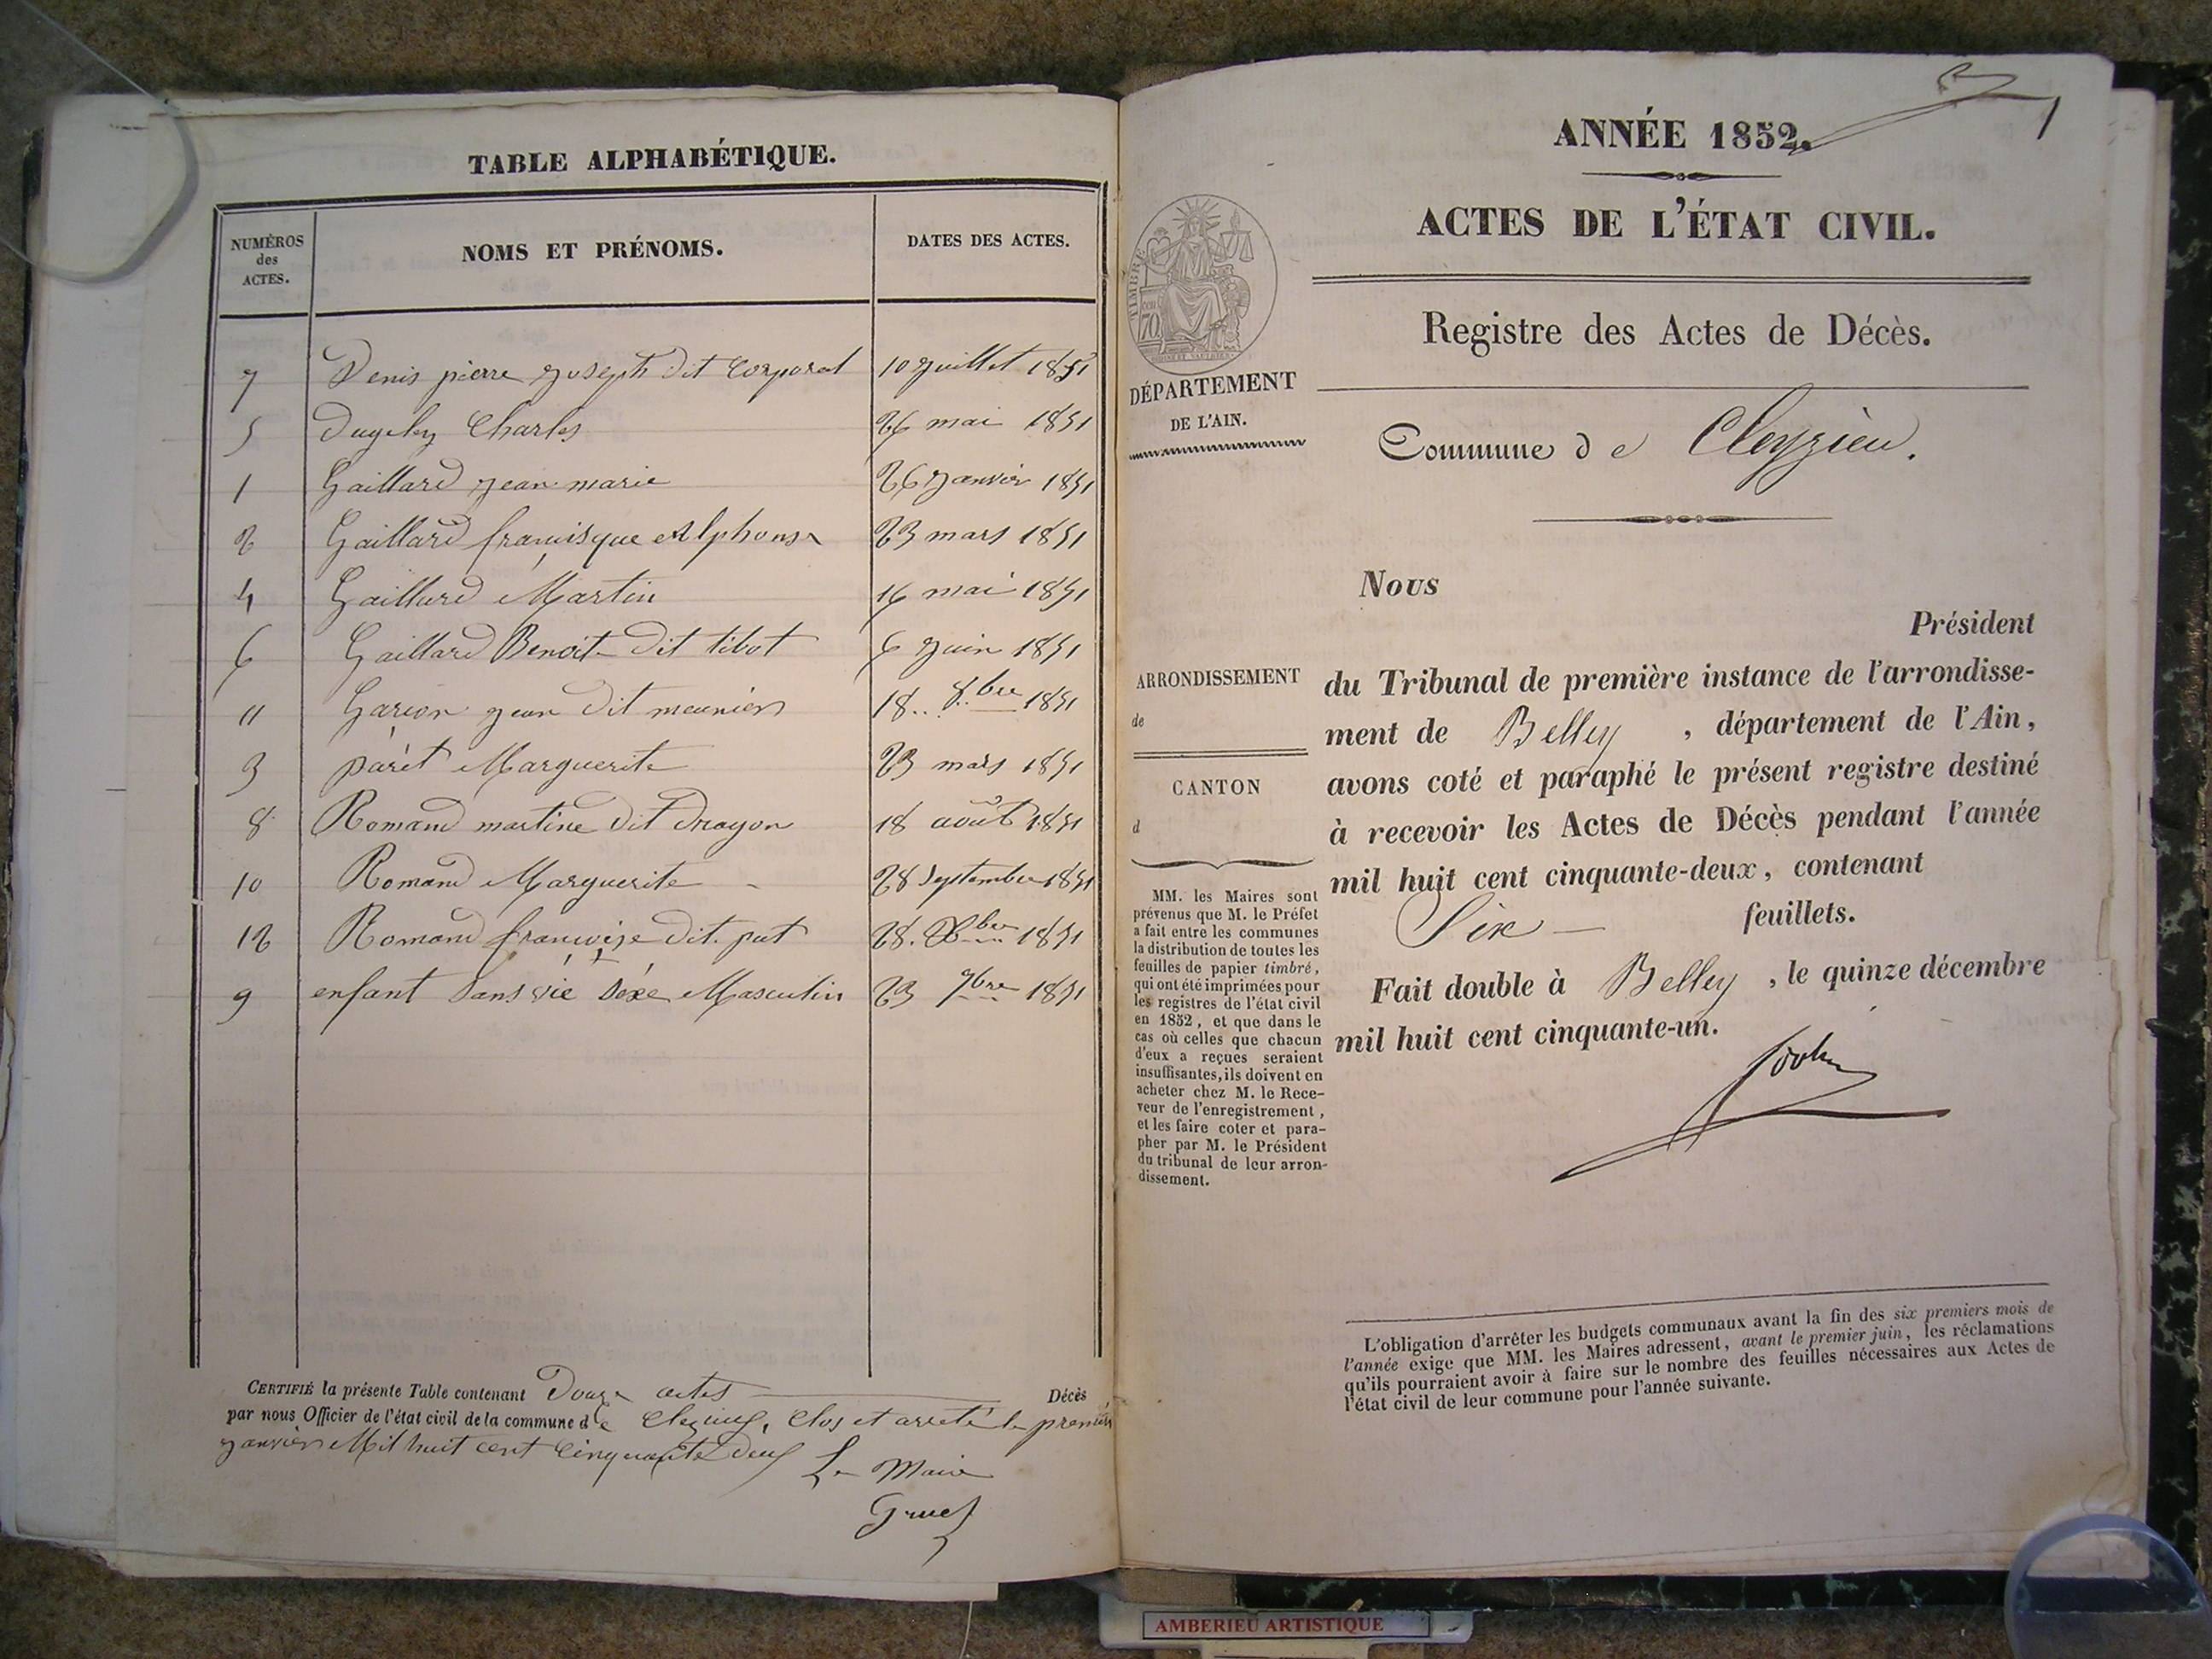 TABLE ALPHABÉTIQUE.
NUMÉROS des ACTES. NOMS ET PRÉNOMS. DATES DES ACTES.
7 Denis pierre joseph dit Corporal 10 juillet 1851
5 Dugeley Charles 26 mai 1851
1 Gaillard jean marie 26 janvier 1851
2 Gaillard francisque Alphonse 23 mars 1851
4 Gaillard Martin 16 mai 1851
6 Gaillard Benoit dit tibot 6 juin 1851
11 Garion jean dit meunier 18.. 8.bre 1851
3 parèt Marguerite 23 mars 1851
8 Romand martine dit Dragon 18 août 1851
10 Romand Marguerite 28 Septembre 1851
12 Romand françoise dit put 28. Xbre 1851
9 enfant Sans vie Séxe Masculin 23 7bre 1851
CERTIFIÉ la présente Table contenant Douze actes Décès
par nous Officier de l'état civil de la commune de Cleyzieux, Clos et arreté le premier
janvier Mil huit cent Cinquante Deux Le Maire
Gruel
1
ANNÉE 1852.
ACTES DE L'ÉTAT CIVIL.
Registre des Actes de Décès.
TIMBRE
70
DÉPARTEMENT
DE L'AIN.
Commune de Cleyzieu.
Nous
Président
du Tribunal de première instance de l'arrondisse-
ment de Belley , département de l'Ain,
avons coté et paraphé le présent registre destiné
à recevoir les Actes de Décès pendant l'année
mil huit cent cinquante-deux, contenant
Six feuillets.
Fait double à Belley , le quinze décembre
mil huit cent cinquante-un.
ARRONDISSEMENT
de
CANTON
d
MM. les Maires sont
prévenus que M. le Préfet
a fait entre les communes
la distribution de toutes les
feuilles de papier timbré,
qui ont été imprimées pour
les registres de l'état civil
en 1852, et que dans le
cas où celles que chacun
d'eux a reçues seraient
insuffisantes, ils doivent en
acheter chez M. le Rece-
veur de l'enregistrement,
et les faire coter et para-
pher par M. le Président
du tribunal de leur arron-
dissement.
L'obligation d'arrêter les budgets communaux avant la fin des six premiers mois de
l'année exige que MM. les Maires adressent, avant le premier juin, les réclamations
qu'ils pourraient avoir à faire sur le nombre des feuilles nécessaires aux Actes de
l'état civil de leur commune pour l'année suivante.
AMBERIEU ARTISTIQUE